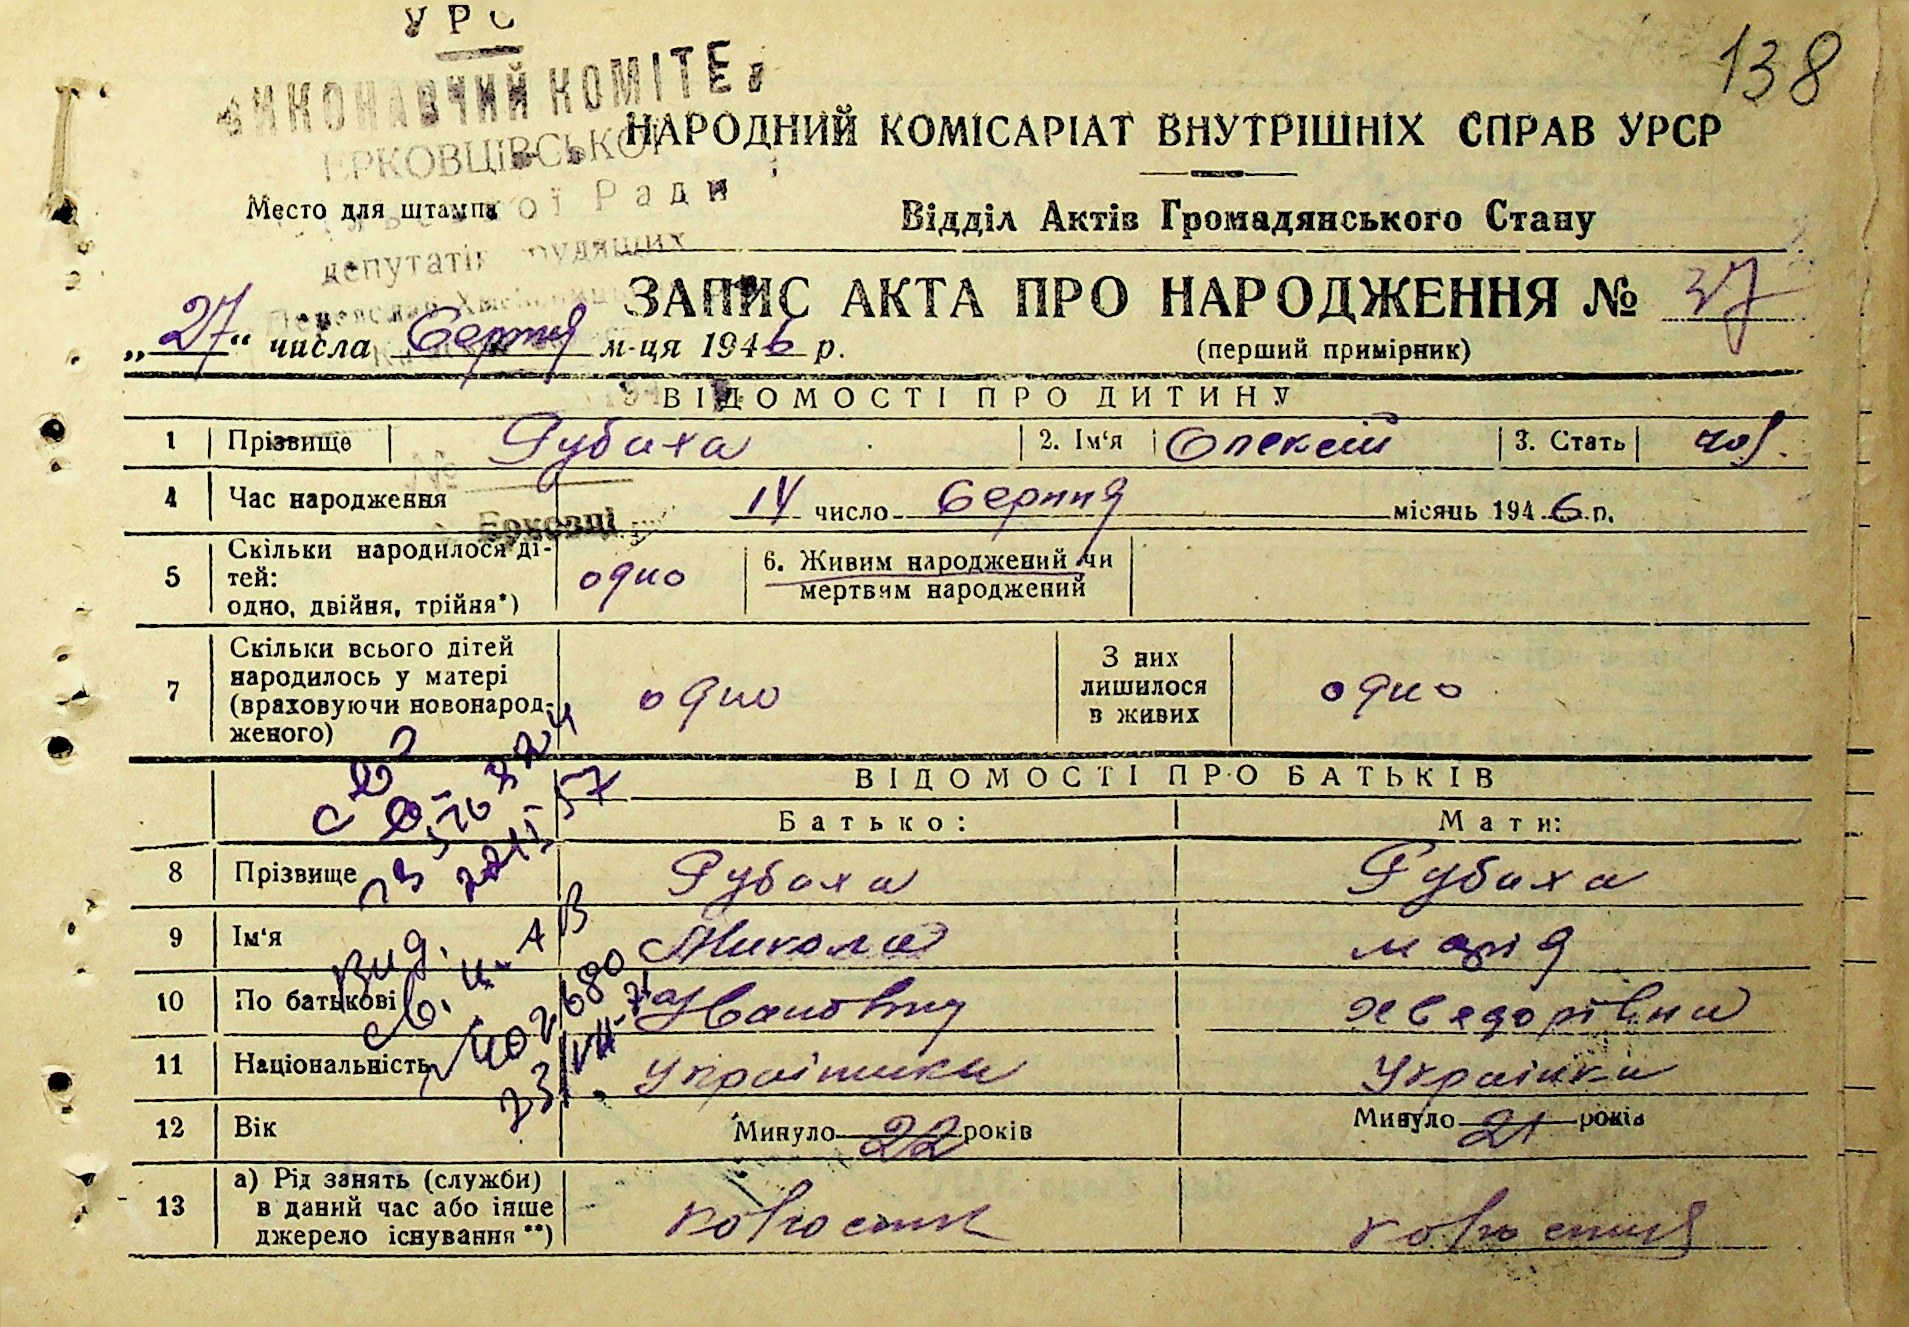 138
УРС
ВИКОНАВЧИЙ КОМІТЕ
ЕРКОВЦІВСЬКОЇ
Ради
депутатів трудящих
НАРОДНИЙ КОМІСАРІАТ ВНУТРІШНІХ СПРАВ УРСР
Место для штампа
Відділ Актів Громадянського Стану
ЗАПИС АКТА ПРО НАРОДЖЕННЯ № 37
„27“ числа Серпня м-ця 1946 р. (перший примірник)
ВІДОМОСТІ ПРО ДИТИНУ
1 Прізвище Рубаха 2. Ім‘я Олексій 3. Стать чол.
4 Час народження 14 число Серпня місяць 1946 р.
с. Ерковці
5 Скільки народилося ді-
тей:
одно, двійня, трійня*) одно 6. Живим народжений чи
мертвим народжений
7 Скільки всього дітей
народилось у матері
(враховуючи новонарод-
женого) одно З них
лишилося
в живих одно
ВІДОМОСТІ ПРО БАТЬКІВ
Батько: Мати:
8 Прізвище Рубаха Рубаха
9 Ім‘я Микола Марія
10 По батькові Іванович Хведорівна
11 Національність Українець Українка
12 Вік Минуло 22 років Минуло 21 років
13 а) Рід занять (служби)
в даний час або інше
джерело існування**) колгоспник колгоспниця
Вид.
402680